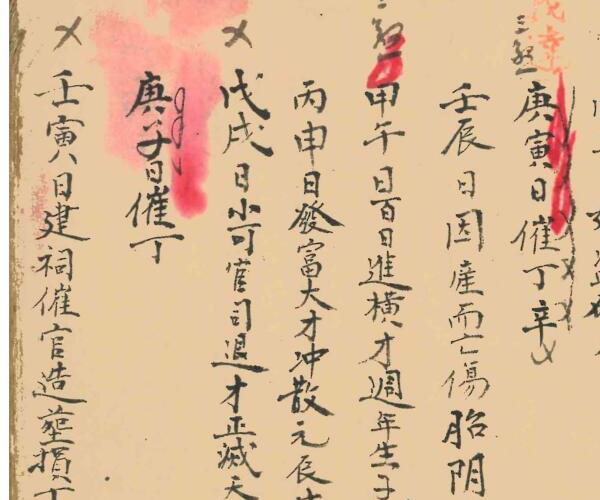 三煞
庚寅日催丁辛
壬辰日因產而亡傷胎阴
甲午日百日進橫才週年生子
丙申日發富大才冲散元辰
戊戌日小可官司退才正滅天
庚子日催丁
壬寅日建祠催官造葬損丁